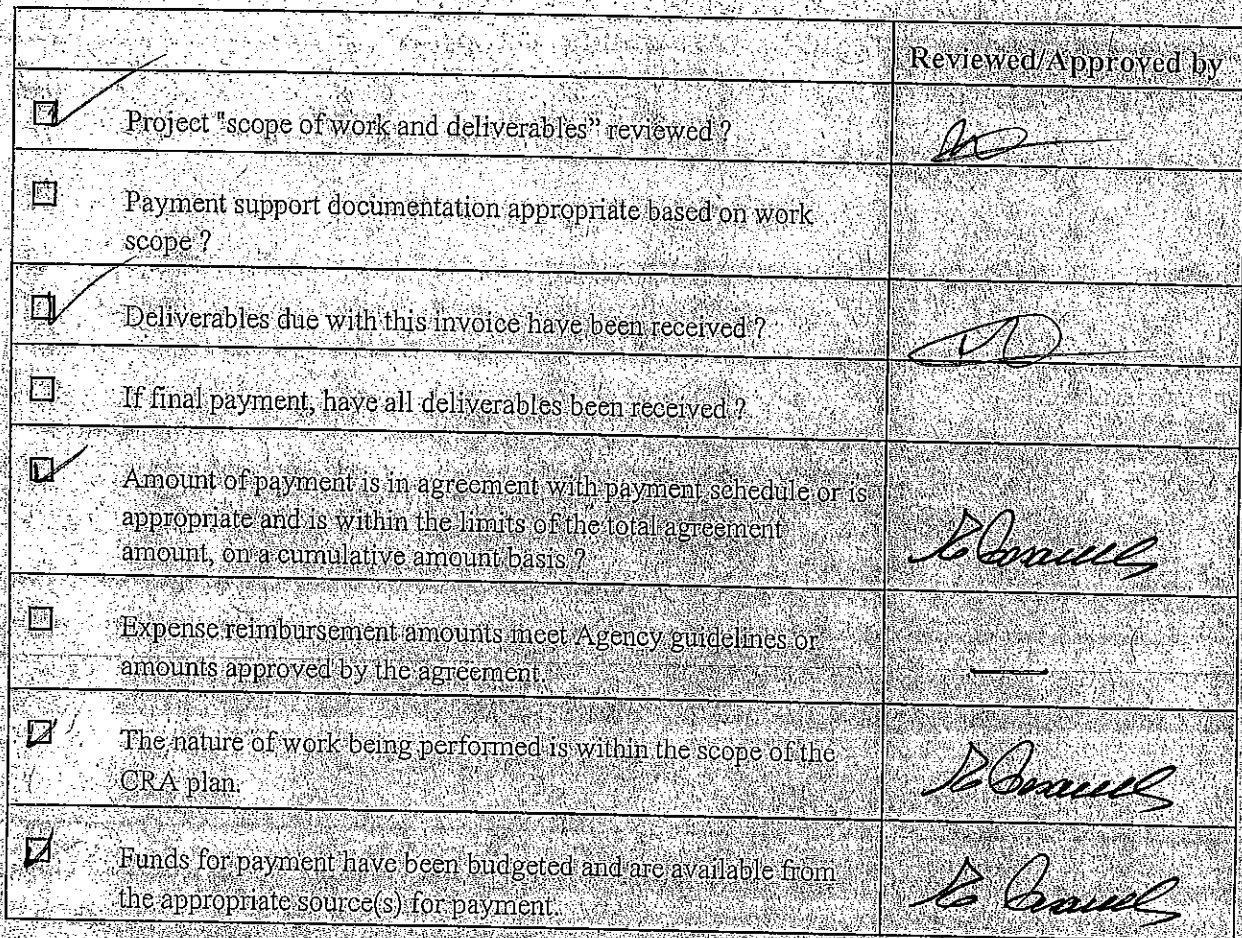 Reviewed/Approved by
Project "scope of work and deliverables" reviewed ?
Payment support documentation appropriate based on work
scope ?
Deliverables due with this invoice have been received ?
If final payment, have all deliverables been received ?
Amount of payment is in agreement with payment schedule or is
appropriate and is within the limits of the total agreement
amount, on a cumulative amount basis ?
Expense reimbursement amounts meet Agency guidelines or
amounts approved by the agreement.
The nature of work being performed is within the scope of the
CRA plan.
Funds for payment have been budgeted and are available from
the appropriate source(s) for payment.